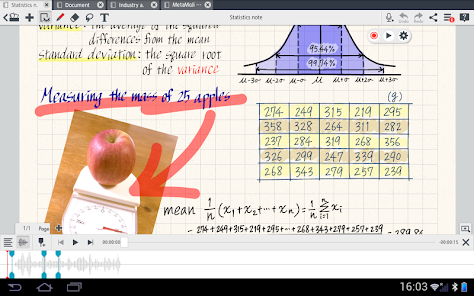 Statistics n.
Document
Industry a.
MetaMoJi
Statistics note
Variance: the average of the squared
differences from the mean
Standard deviation: the square root
of the variance
95.44%
99.74%
μ-3σ μ-2σ μ-σ μ μ+σ μ+2σ μ+3σ
Measuring the mass of 25 apples
(g)
274 249 315 219 295
358 328 264 311 282
237 284 319 268 356
326 299 247 339 290
268 343 279 257 239
mean 1/n (x₁+x₂+⋯+xₙ) = 1/n Σ xᵢ
n
i=1
= 274+249+315+219+295+⋯+268+343+279+257+239
1/1 Page
00:00:00
-00:00:15
16:03